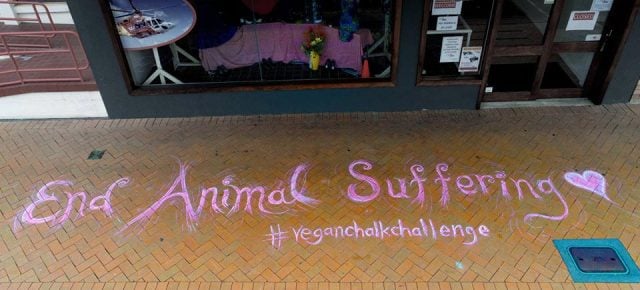 CLOSED
End Animal Suffering
#veganchalkchallenge